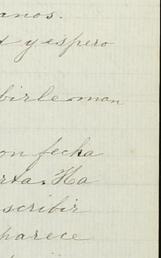 anos.
y espero
birle man
on fecha
rta. Ha
scribir
parece